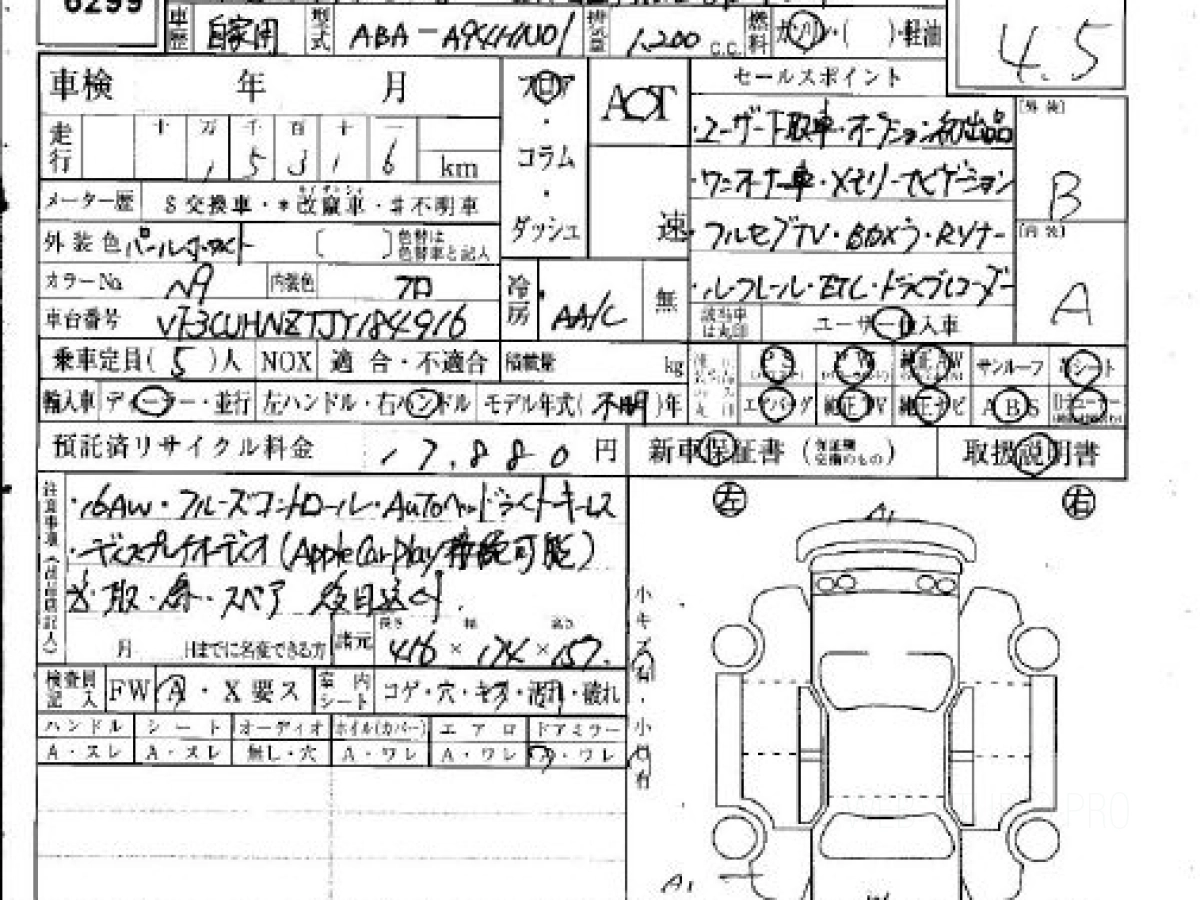 6299
車歴 自家用 型式 ABA-A94HN01 排気量 1,200 C.C. 燃料 ガソリン・( )・軽油
4.5
車検 年 月
フロア・コラム・ダッシュ
AOT
速
セールスポイント
・ユーザー下取車・オークション初出品
・ワンオーナー車・メモリーナビゲーション
・フルセグTV・BDXう・Rソナー
・ルーフレール・ETC・ドライブレコーダー
[外装] B
[内装] A
走行 十 万 千 百 十 一
1 5 3 1 6 km
メーター歴 $交換車・*改竄車・#不明車
外装色 パールホワイト [ ] 色替は色替車と記入
カラーNo. N9 内装色 クロ
冷房 AA/C 無
車台番号 VF3CUHNZTJY184916
該当車は丸印 ユーザー買入車
乗車定員( 5 )人 NOX 適合・不適合 積載量 kg
PS PW 純正AW サンルーフ 革シート
輸入車 ディーラー・並行 左ハンドル・右ハンドル モデル年式( 不明 )年
エアバッグ 純正TV 純正ナビ ABS
預託済リサイクル料金 17,880 円
新車保証書 (保証継交換のもの) 取扱説明書
注意事項
・16AW・クルーズコントロール・AUTOヘッドライト・キーレス
・ディスプレイオーディオ(Apple CarPlay接続可能)
※取・保・スペア 後日送付.
月 日までに名変できる方 諸元 長さ 幅 高さ 416 × 174 × 157.
左 右
A1
検査員記入 FW A・X要ス 室内シート コゲ・穴・キズ・濡れ・破れ
ハンドル シート オーディオ ホイル(カバー) エアロ ドアミラー
A・スレ A・スレ 無し・穴 A・ワレ A・ワレ A・ワレ
小キズ有・小凹有
A1